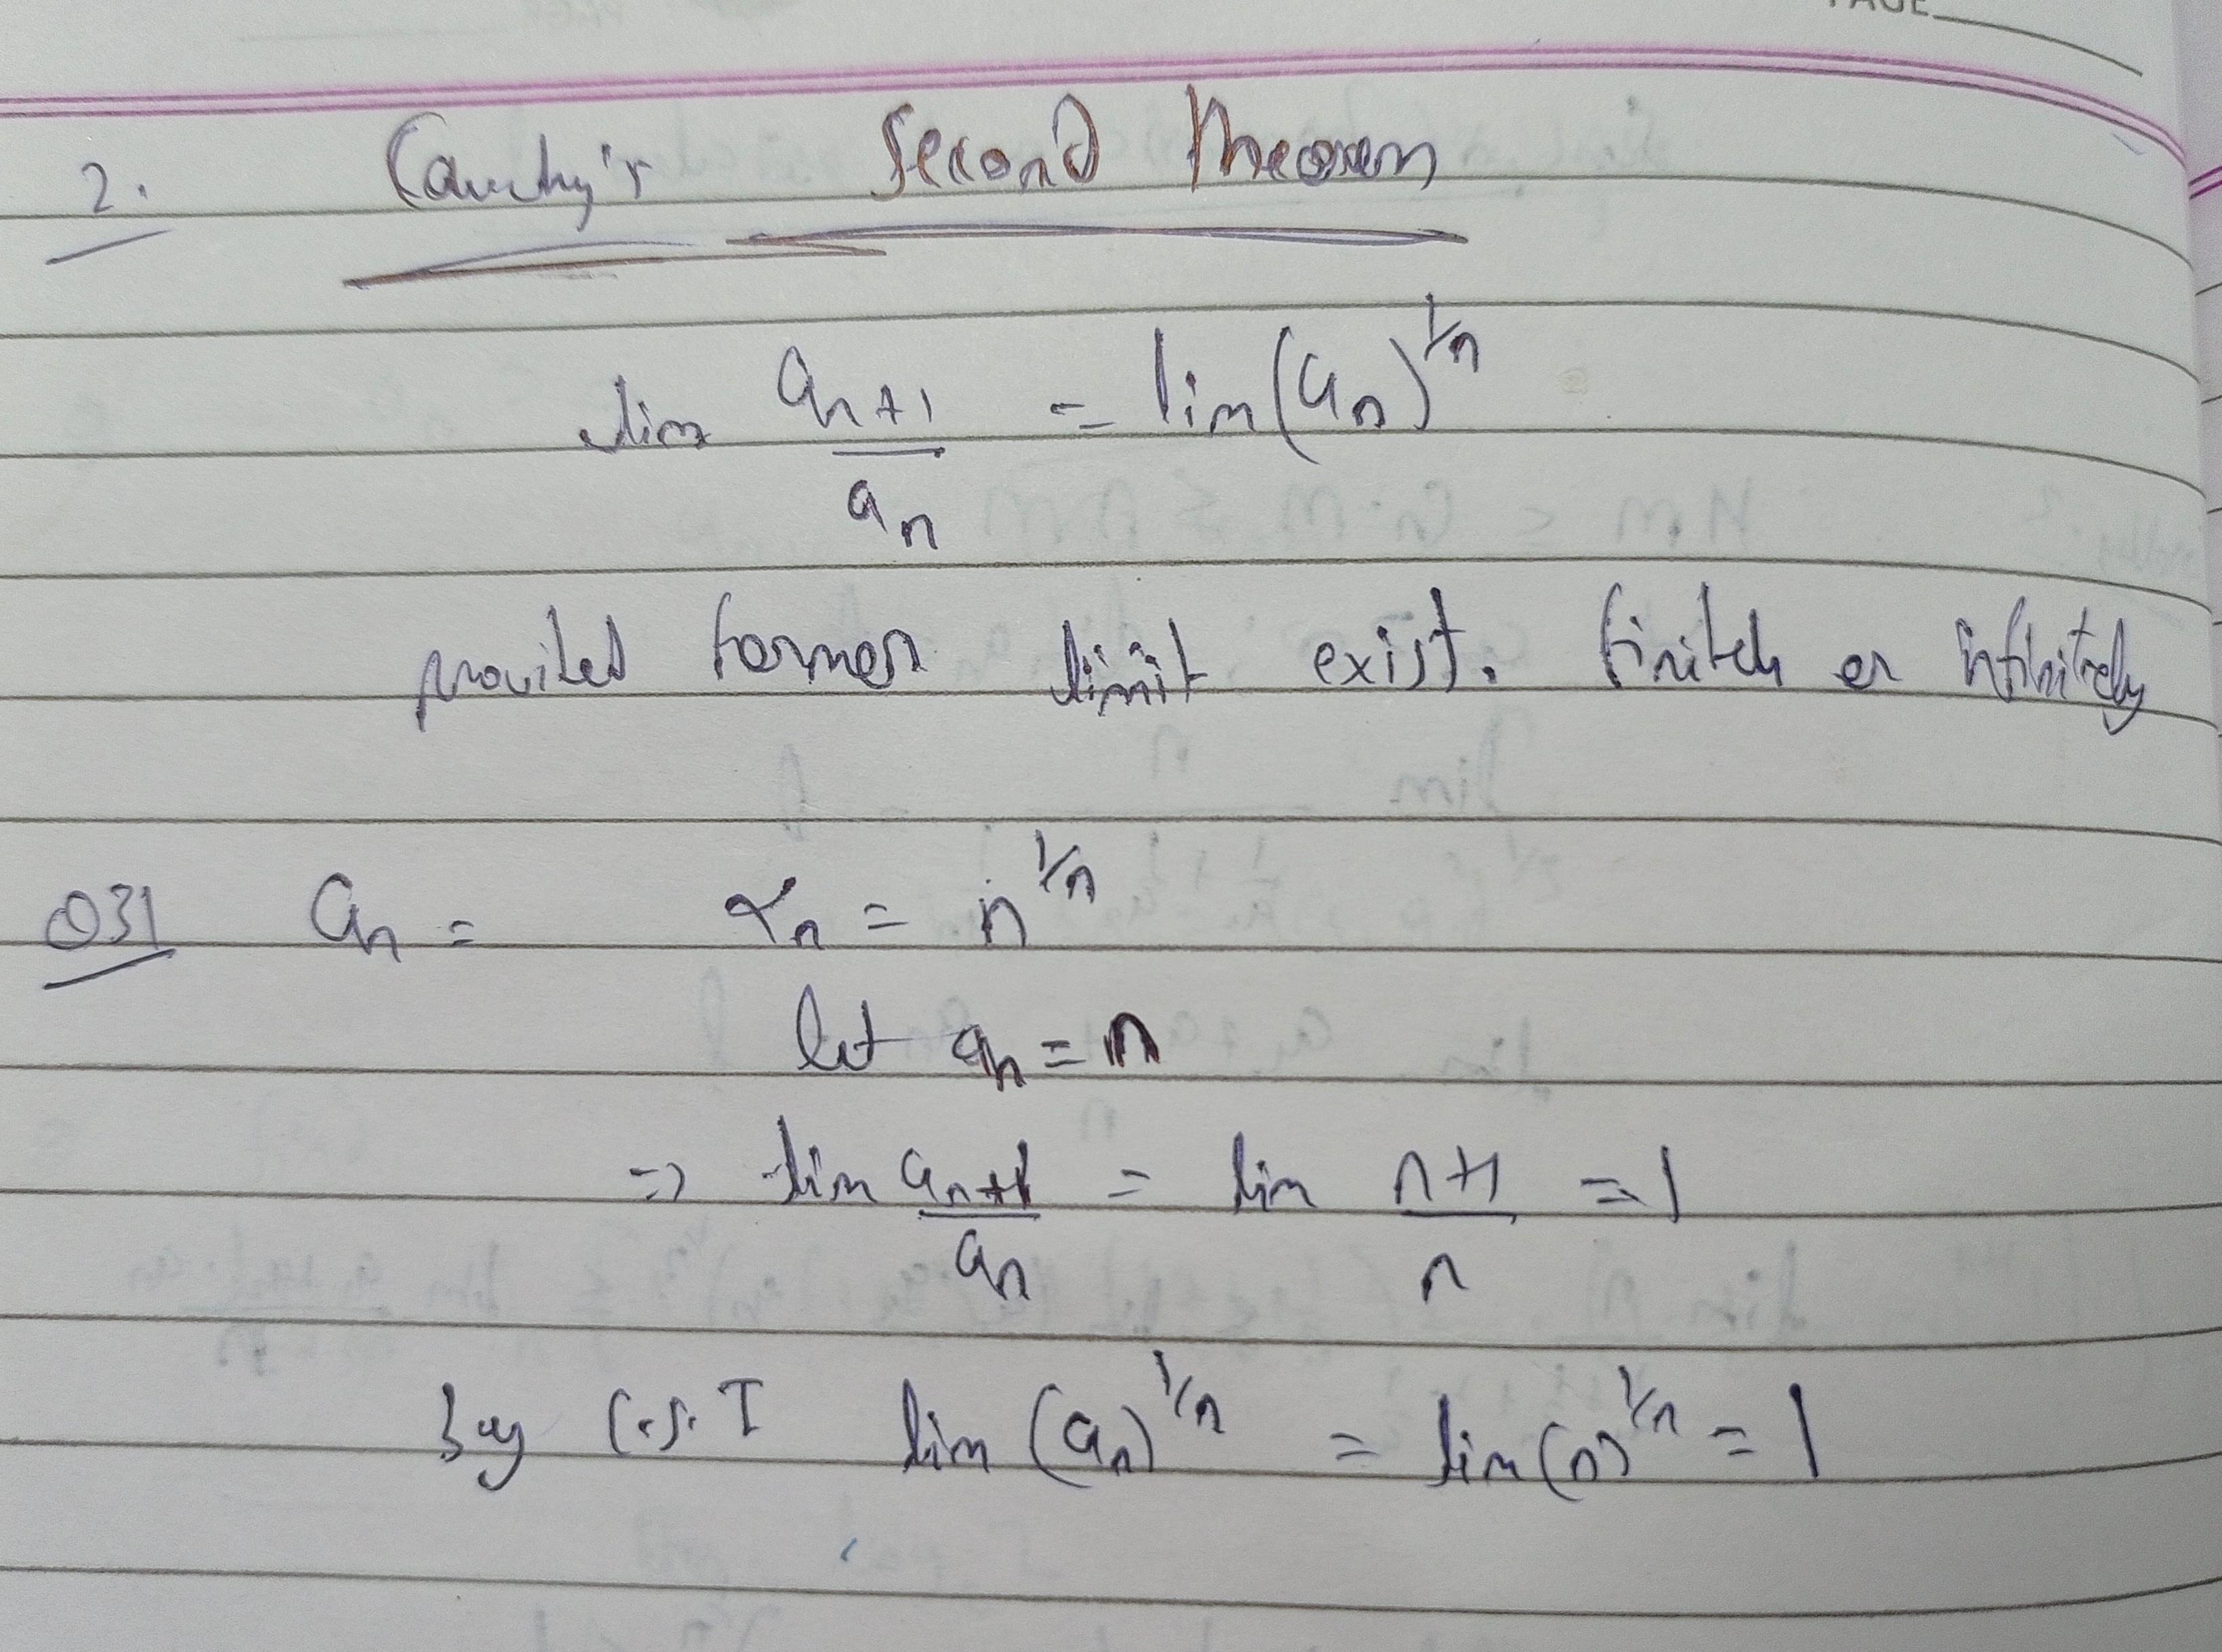 PAGE
2. Cauchy's Second Theorem
lim a_{n+1}/a_n = lim (a_n)^{1/n}
provided former limit exist. finitely or infinitely
Q31 a_n = x_n = n^{1/n}
let a_n = n
=> lim a_{n+1}/a_n = lim n+1/n = 1
by C.S.T lim (a_n)^{1/n} = lim (n)^{1/n} = 1